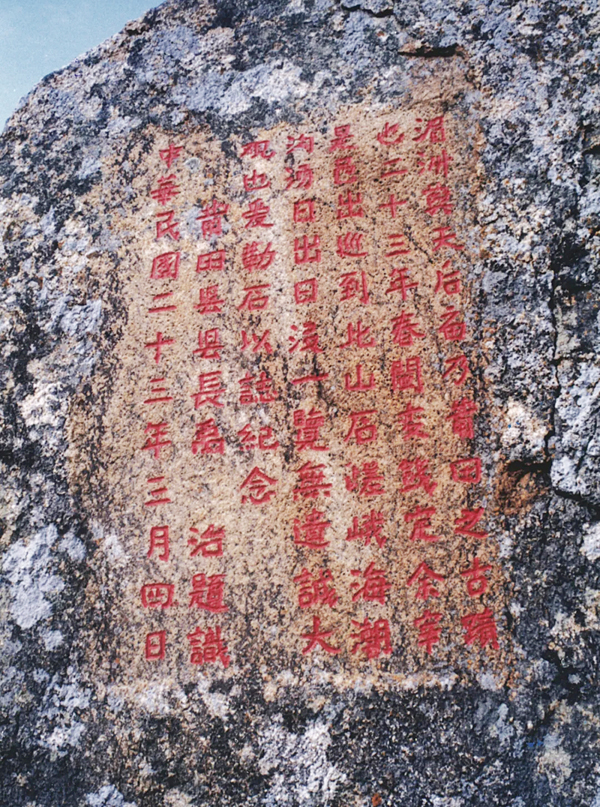 湄洲與天后宮乃莆田之古蹟
也二十三年春閩變戡定余宰
是邑出巡到此山石嵯峨海潮
洶湧日出日沒一覽無遺誠大
觀也爰勒石以誌紀念
莆田縣縣長禹 治題識
中華民國二十三年三月四日